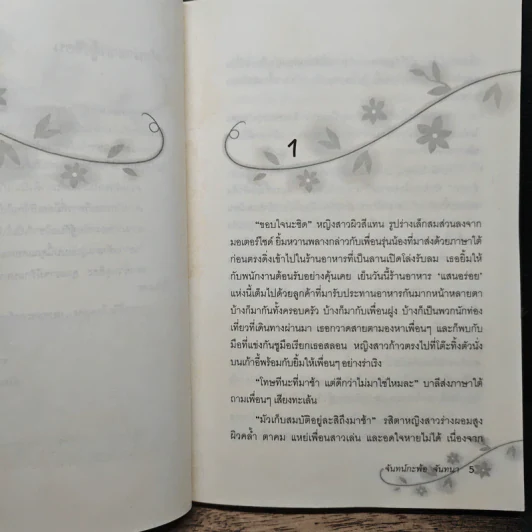 1
“ขอบใจนะชิด” หญิงสาวผิวสีแทน รูปร่างเล็กสมส่วนลงจาก
มอเตอร์ไซค์ ยิ้มหวานพลางกล่าวกับเพื่อนรุ่นน้องที่มาส่งด้วยภาษาใต้
ก่อนตรงดิ่งเข้าไปในร้านอาหารที่เป็นลานเปิดโล่งรับลม เธอยิ้มให้
กับพนักงานต้อนรับอย่างคุ้นเคย เย็นวันนี้ร้านอาหาร ‘แสนอร่อย’
แห่งนี้เต็มไปด้วยลูกค้าที่มารับประทานอาหารกันมากหน้าหลายตา
บ้างก็มากันทั้งครอบครัว บ้างก็มากับเพื่อนฝูง บ้างก็เป็นพวกนักท่อง
เที่ยวที่เดินทางผ่านมา เธอกวาดสายตามองหาเพื่อนๆ และก็พบกับ
มือที่แข่งกันชูมือเรียกเธอสลอน หญิงสาวก้าวตรงไปที่โต๊ะทิ้งตัวนั่ง
บนเก้าอี้พร้อมกับยิ้มให้เพื่อนๆ อย่างร่าเริง
“โทษทีนะที่มาช้า แต่ดีกว่าไม่มาใช่ไหมละ” บาลีส่งภาษาใต้
ถามเพื่อนๆ เสียงทะเล้น
“มัวเก็บสมบัติอยู่ละสิถึงมาช้า” รสิตาหญิงสาวร่างผอมสูง
ผิวคล้ำ ตาคม แหย่เพื่อนสาวเล่น และอดใจหายไม่ได้ เนื่องจาก
จันทน์กะพ้อ จันทนา 5